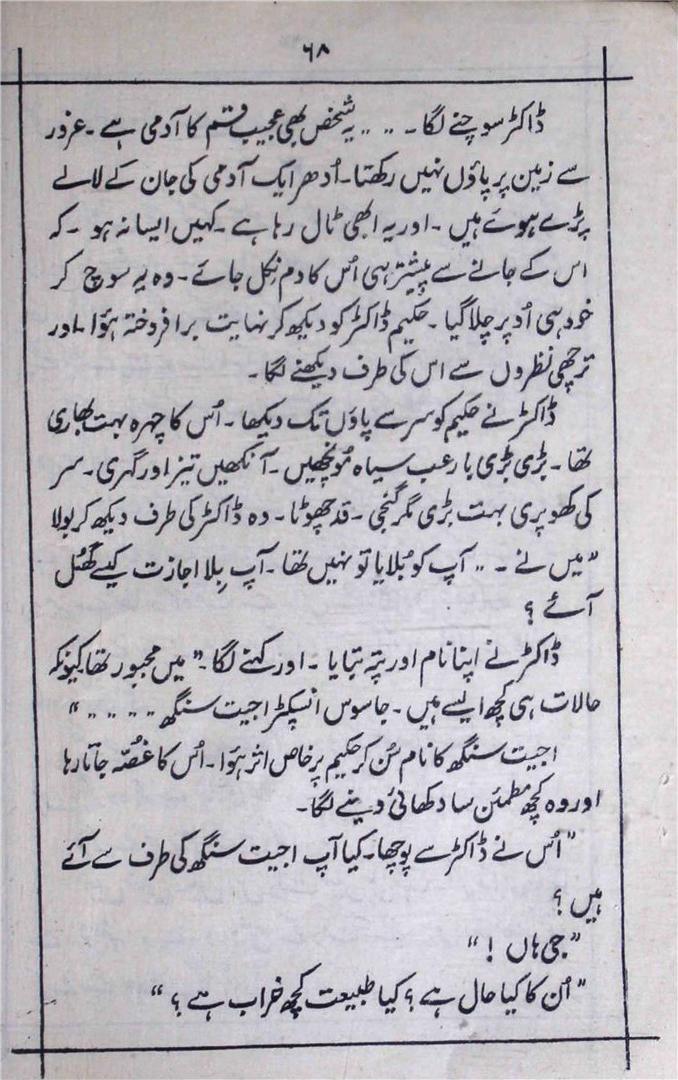 ۶۸
ڈاکٹر سوچنے لگا۔ ۔۔ ۔۔ یہ شخص بھی عجیب قسم کا آدمی ہے۔ غرور
سے زمین پر پاؤں نہیں رکھتا۔ اُدھر ایک آدمی کی جان کے لالے
پڑے ہوئے ہیں ۔ اور یہ ابھی ٹال رہا ہے ۔ کہیں ایسا نہ ہو ۔ کہ
اس کے جانے سے پیشتر ہی اُس کا دم نکل جائے۔ وہ یہ سوچ کر
خود ہی اُوپر چلا گیا ۔ حکیم ڈاکٹر کو دیکھ کر نہایت برافروختہ ہؤا ۔ اور
ترچھی نظروں سے اس کی طرف دیکھنے لگا۔
ڈاکٹر نے حکیم کو سر سے پاؤں تک دیکھا ۔ اُس کا چہرہ بہت بھاری
تھا۔ بڑی بڑی بارعب سیاہ مُونچھیں ۔ آنکھیں تیز اور گہری ۔ سر
کی کھوپری بہت بڑی مگر گنجی ۔ قد چھوٹا ۔ وہ ڈاکٹر کی طرف دیکھ کر بولا
”میں نے ۔ ۔۔ آپ کو بُلایا تو نہیں تھا ۔ آپ بِلا اجازت کیسے گھُس
آئے ؟
ڈاکٹر نے اپنا نام اور پتہ بتایا ۔ اور کہنے لگا۔ ”میں مجبور تھا کیونکہ
حالات ہی کچھ ایسے ہیں ۔ جاسوس انسپکٹر اجیت سنگھ ۔۔ ۔۔ ۔۔“
اجیت سنگھ کا نام سُن کر حکیم پر خاص اثر ہؤا ۔ اُس کا غصّہ جاتا رہا
اور وہ کچھ مطمئن سا دکھائی دینے لگا۔
”اُس نے ڈاکٹر سے پوچھا۔ کیا آپ اجیت سنگھ کی طرف سے آئے
ہیں ؟
”جی ہاں !“
”اُن کا کیا حال ہے ؟ کیا طبیعت کچھ خراب ہے ؟“